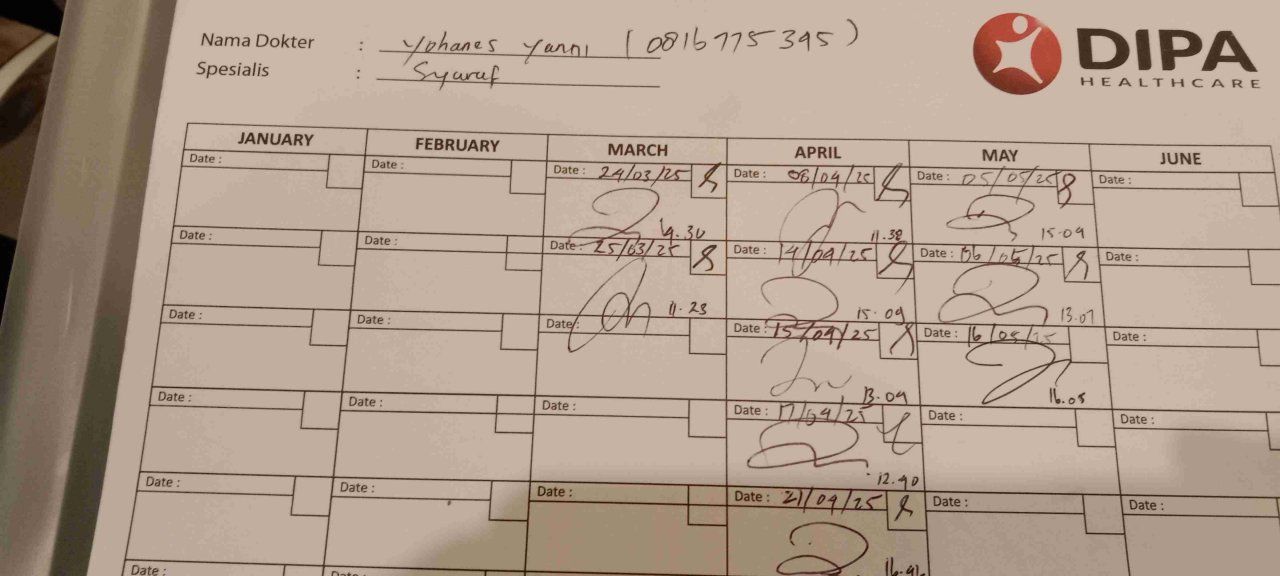 Nama Dokter : Yohanes Yanni (0816775395)
Spesialis : Syaraf
DIPA
HEALTHCARE
JANUARY FEBRUARY MARCH APRIL MAY JUNE
Date : Date : Date : 24/03/25 Date : 08/04/25 Date : 05/05/25 Date :
11.38 15.09
Date : Date : Date : 25/03/25 Date : 14/04/25 Date : 06/05/25 Date :
11.23 15.09 13.07
Date : Date : Date : Date : 15/04/25 Date : 16/05/25 Date :
13.09 16.05
Date : Date : Date : Date : 17/04/25 Date : Date :
12.40
Date : Date : Date : Date : 21/04/25 Date : Date :
Date : Date :